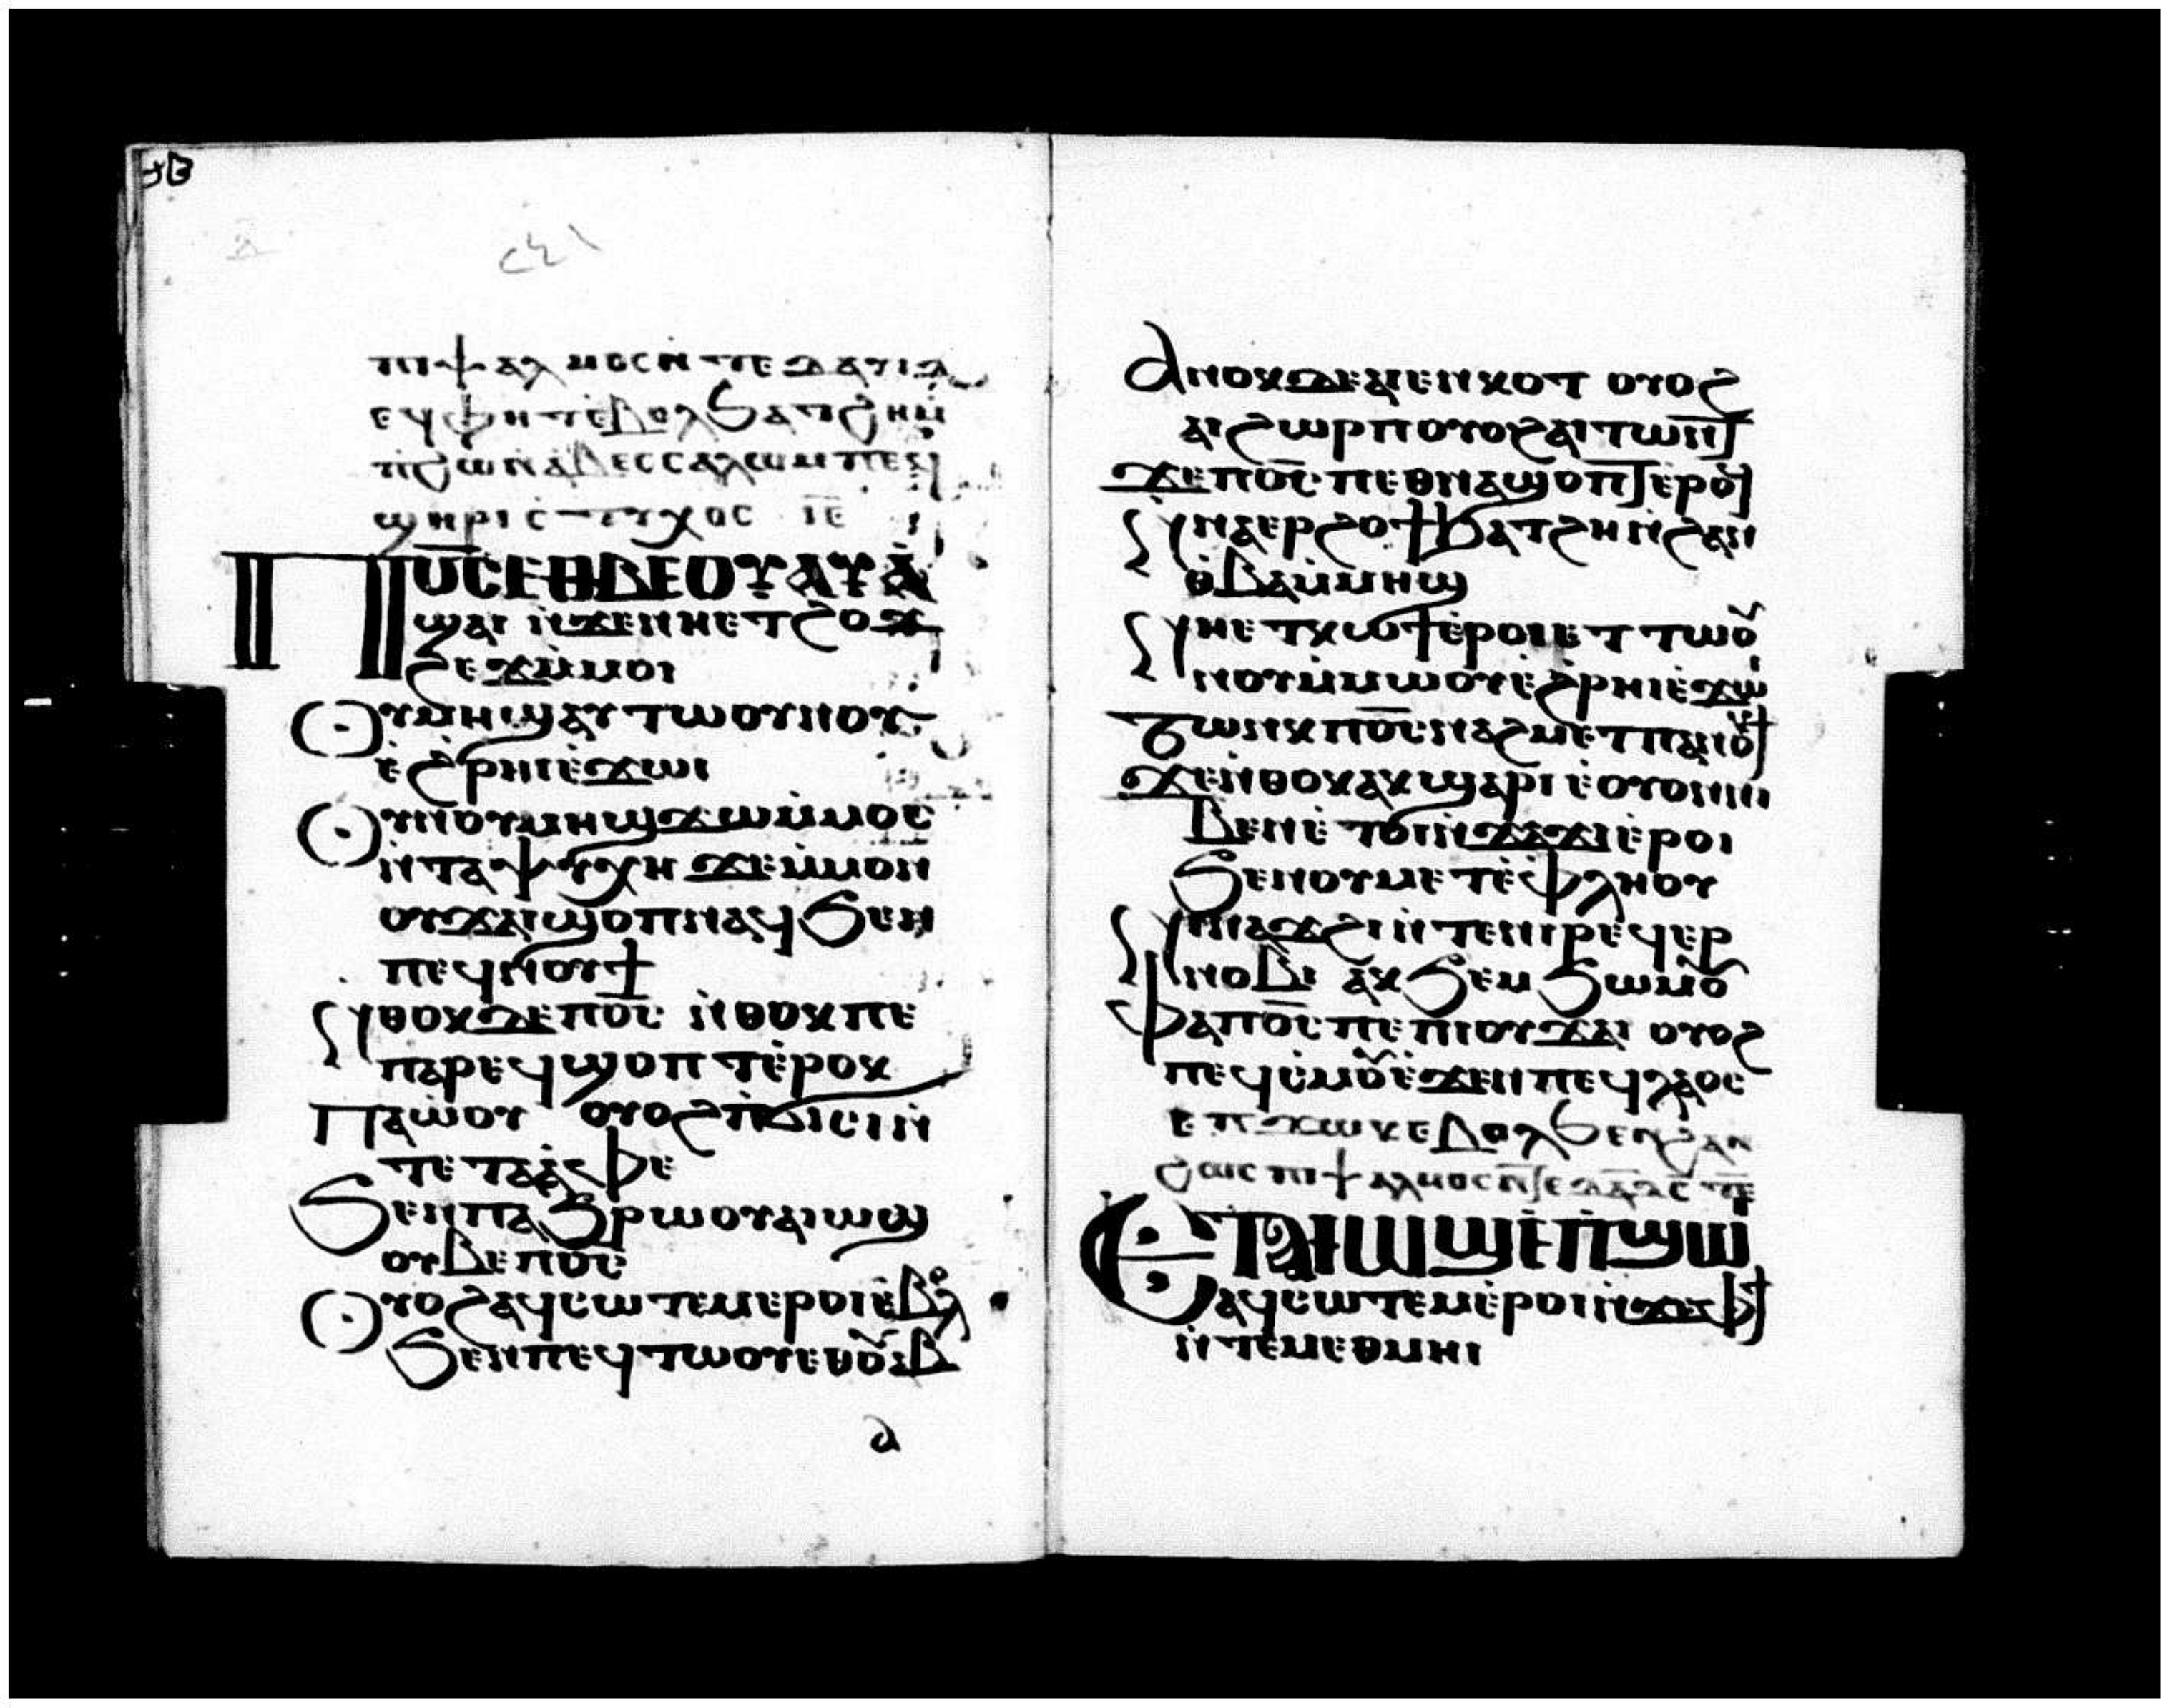 ⲡⲓⲯⲁⲗⲙⲟⲥ ⲛ̀ⲧⲉ ⲇⲁⲩⲓⲇ
ⲉϥⲫⲏⲧ ⲉ̀ⲃⲟⲗ ϧⲁⲧϩⲏ ⲙ̀
ⲡϩⲟ ⲛ̀ⲁⲃⲉⲥⲥⲁⲗⲱⲙ ⲡⲉϥ
ϣⲏⲣⲓ ⲥⲧⲩⲭⲟⲥ ⲓ̅ⲉ̅
Ⲡⲟ̅ⲥ̅ ⲉⲑⲃⲉⲟⲩ ⲁⲩⲁ̀
ϣⲁⲓ ⲛ̀ϫⲉⲛⲏⲉⲧϩⲟϫ
ϩⲉϫ ⲙ̀ⲙⲟⲓ
Ⲟⲩⲙⲏϣ ⲁⲩⲧⲱⲟⲩⲛⲟⲩ
ⲉ̀ϩⲣⲏⲓ ⲉ̀ϫⲱⲓ
Ⲟⲩⲟⲛ ⲟⲩⲙⲏϣ ϫⲱ ⲙ̀ⲙⲟⲥ
ⲛ̀ⲧⲁⲯⲩⲭⲏ ϫⲉ ⲙ̀ⲙⲟⲛ
ⲟⲩϫⲁⲓ ϣⲟⲡ ⲛⲁϥ ϧⲉⲛ
ⲡⲉϥⲛⲟⲩϯ
Ⲛⲑⲟⲕ ⲇⲉ ⲡⲟ̅ⲥ̅ ⲛ̀ⲑⲟⲕ ⲡⲉ
ⲡⲁⲣⲉϥϣⲟⲡⲧ ⲉ̀ⲣⲟⲕ
Ⲡⲁⲱ̀ⲟⲩ ⲟⲩⲟϩ ⲡ̀ϭⲓⲥⲓ ⲛ̀
ⲧⲉ ⲧⲁⲁ̀ⲫⲉ
Ϧⲉⲛ ⲡⲁϧⲣⲱⲟⲩ ⲁⲓⲱϣ
ⲟⲩⲃⲉ ⲡⲟ̅ⲥ̅
Ⲟⲩⲟϩ ⲁϥⲥⲱⲧⲉⲙ ⲉⲣⲟⲓ ⲉ̀ⲃⲟⲗ
ϧⲉⲛ ⲡⲉϥⲧⲱⲟⲩ ⲉⲑⲟⲩⲁⲃ
ⲁ
Ⲁⲛⲟⲕ ⲇⲉ ⲁⲓⲉⲛⲕⲟⲧ ⲟⲩⲟϩ
ⲁⲓϩⲱⲣⲡ ⲟⲩⲟϩ ⲁⲓⲧⲱⲛⲧ
ϫⲉ ⲡⲟ̅ⲥ̅ ⲡⲉⲑⲛⲁϣⲟⲡⲧ ⲉ̀ⲣⲟϥ
Ⲛⲛⲁⲉⲣϩⲟϯ ϧⲁⲧϩⲏ ⲛ̀ϩⲁⲛ
ⲑ̀ⲃⲁ ⲙ̀ⲙⲏϣ
Ⲛⲏⲉⲧⲕⲱϯ ⲉ̀ⲣⲟⲓ ⲉⲧⲧⲱⲟⲩ
ⲛⲟⲩ ⲙ̀ⲙⲱⲟⲩ ⲉ̀ϩⲣⲏⲓ ⲉ̀ϫⲱⲓ
Ⲧⲱⲛⲕ ⲡⲟ̅ⲥ̅ ⲛⲁϩⲙⲉⲧ ⲡⲁⲛⲟⲩϯ
Ϫⲉ ⲛ̀ⲑⲟⲕ ⲁⲕϣⲁⲣⲓ ⲉ̀ⲟⲩⲟⲛ ⲛⲓ
ⲃⲉⲛ ⲉ̀ⲧⲟⲓ ⲛ̀ϫⲁϫⲓ ⲉ̀ⲣⲟⲓ
ϧⲉⲛ ⲟⲩⲙⲉⲧⲉ̀ⲫⲗⲏⲟⲩ
Ⲛⲛⲁϫϩⲓ ⲛ̀ⲧⲉ ⲛⲓⲣⲉϥⲉⲣ
ⲛⲟⲃⲓ ⲁⲕϧⲉⲙϧⲱⲙⲟⲩ
Ⲫⲁ ⲡⲟ̅ⲥ̅ ⲡⲉ ⲡⲓⲟⲩϫⲁⲓ ⲟⲩⲟϩ
ⲡⲉϥⲥ̀ⲙⲟⲩ ⲉ̀ϫⲉⲛ ⲡⲉϥⲗⲁⲟⲥ
ⲉⲡϫⲱⲕ ⲉⲃⲟⲗ ϧⲉⲛ ϩⲁⲛ
ϩⲱⲥ ⲡⲓⲯⲁⲗⲙⲟⲥ
Ⲉⲧⲁⲓⲱϣ ⲉ̀ⲡ̀ϣⲱⲓ
ⲁϥⲥⲱⲧⲉⲙ ⲉ̀ⲣⲟⲓ ⲛ̀ϫⲉ ⲫϯ
ⲛ̀ⲧⲉ ⲙⲉⲑⲙⲏⲓ